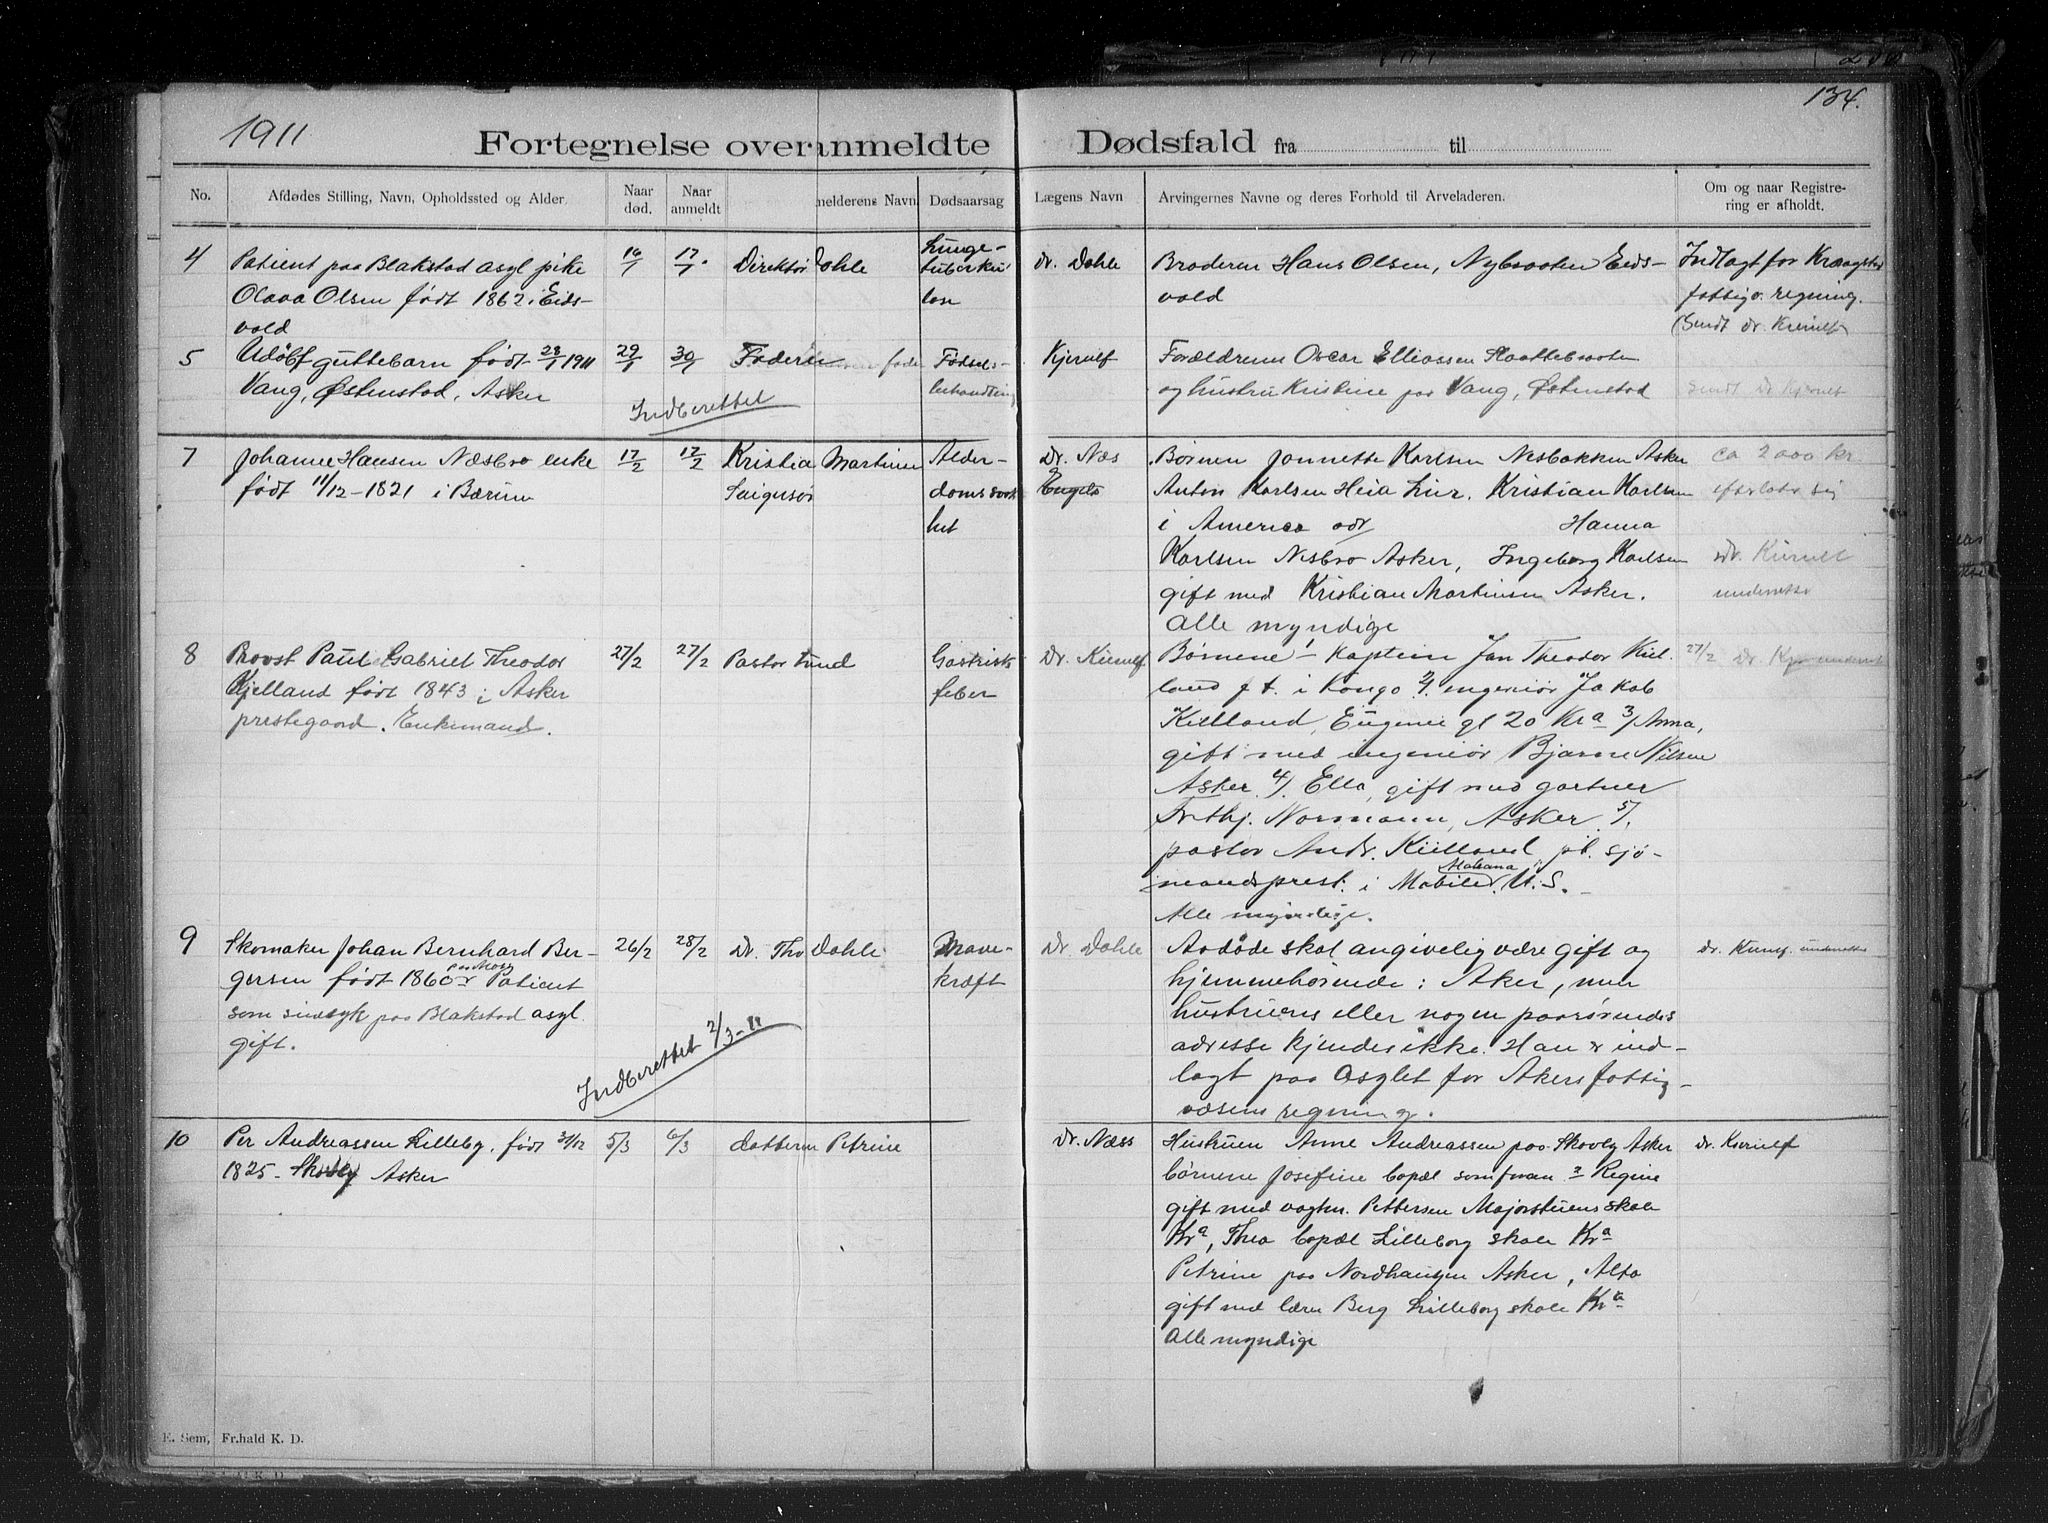 134.
1911
Fortegnelse over anmeldte Dødsfald fra til
No.
Afdødes Stilling, Navn, Opholdssted og Alder
Naar død.
Naar anmeldt
melderens Navn
Dødsaarsag
Lægens Navn
Arvingernes Navne og deres Forhold til Arveladeren.
Om og naar Registre-
ring er afholdt.
4
Patient paa Blakstad asyl pike
Olava Olsen født 1862 i Eids-
vold
16/1
17/1
Direktør Dahle
Lunge-
tuberku
lose
Dr. Dahle
Broderen Hans Olsen, Nybraaten Eids-
vold
Indlagt for Kraagstad
fattigv. regning.
(Sendt dr. Kierulf
5
Udøbt guttebarn født 28/1 1911
Vang, Østenstad, Asker
29/1
30/1
Faderen
Indberettet
Fødsels-
behandling
Kjerulf
Forældrene Oscar Elliassen Slaattebraaten
og hustru Kristine paa Vang, Østenstad
Sendt Dr Kjerulf
7
Johanne Hansen Næsbro enke
født 11/12-1821 i Bærum
17/2
17/2
Kristia Martinsen
Alder-
domssvak
het
Dr. Næs
Engels
Børnen Jonnette Karlsen Nesbakken Asker
Anton Karlsen Heia Lier. Kristian Karlsen
i America adr Hanna
Karlsen Nesbro Asker, Ingeborg Karlsen
gift med Kristian Martinsen Asker.
Alle myndige
ca 2000 kr
efterlatt sig
Dr. Kierulf
underrettet
8
Provst Paul Gabriel Theodor
Kjelland født 1843 i Asker
prestegaard. Enkemand.
27/2
27/2
Pastor Lund
Gastrisk
feber
Dr. Kierulf
Børnene 1 Kaptein Jan Theodor Kiel.
land f.t. i Kongo 2/. ingeniør Jakob
Kielland, Eugenie gt 20 Kra 3/ Anna,
gift med ingeniør Bjarne Nilsen
Asker 4/. Ella, gift med gartner
Frithj. Normann, Asker 5/.
pastor Andr. Kielland pt. sjø-
mandsprest. i Mobile U.S.
Alle myndige.
27/2 Dr. Kj underret
9
Skomaker Johan Bernhard Ber-
gersen født 1860 Patient
som sindsyk paa Blakstad asyl
gift.
26/2
28/2
Dr. Tho Dahle
Mave-
kræft
Dr. Dahle
Indberettet 2/3-11
Avdøde skal angivelig være gift og
hjemmehørende i Aker, men
hustruens eller nogen paarørendes
adresse kjendes ikke. Han er ind-
lagt paa Asylet for Akers fattig-
væsens regning.
Dr. Kierulf underrettet
10
Per Andreassen Lilleby, født 31/12
1825 - Skovly Asker
5/3
6/3
datteren Petrine
Dr. Næss
Hustruen Anne Andreassen paa Skovly Asker
børnene Josefine bopæl som foran 2 Regine
gift med vagtm. Pettersen Majorstuens skole
Kra, Thea bopæl Lilleborg skole Kra
Petrine paa Nordhaugen Asker, Alfa
gift med lærer Berg Lilleborg skole Kra
Alle myndige
Dr. Kierulf
E. Sem, Fr.hald K. D.